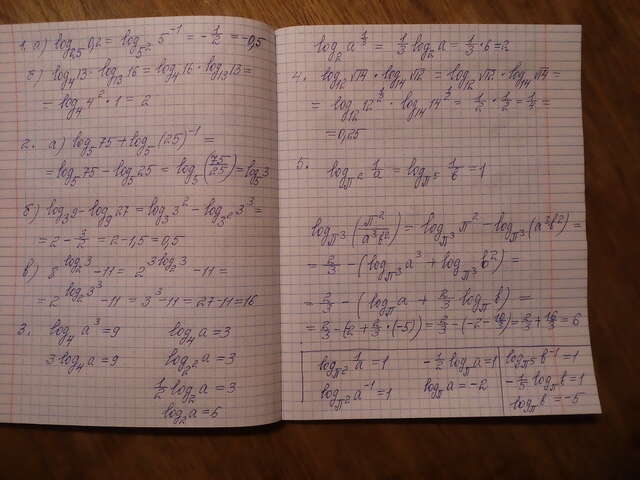 1. а) log₂₅ 0,2 = log₅² 5⁻¹ = -1/2 = -0,5
б) log₄13 · log₁₃16 = log₄16 · log₁₃13 =
= log₄4² · 1 = 2
2. а) log₅75 + log₅(25)⁻¹ =
= log₅75 - log₅25 = log₅(75/25) = log₅3
б) log₃9 - log₉27 = log₃3² - log₃²3³ =
= 2 - 3/2 = 2 - 1,5 = 0,5
в) 8^(log₂3) - 11 = 2^(3log₂3) - 11 =
= 2^(log₂3³) - 11 = 3³ - 11 = 27 - 11 = 16
3. log₄a³ = 9 log₄a = 3
3·log₄a = 9 log₂²a = 3
1/2 log₂a = 3
log₂a = 6
log₂a^(1/3) = 1/3 log₂a = 1/3 · 6 = 2
4. log₁₂√14 · log₁₄√12 = log₁₂√12 · log₁₄√14 =
= log₁₂12^(1/2) · log₁₄14^(1/2) = 1/2 · 1/2 = 1/4 =
= 0,25
5.
log_π² 1/a = log_π⁵ 1/b = 1
log_π³(π²/a³b²) = log_π³ π² - log_π³(a³b²) =
= 2/3 - (log_π³ a³ + log_π³ b²) =
= 2/3 - (log_π a + 2/3 log_π b) =
= 2/3 - (-2 + 2/3 · (-5)) = 2/3 - (-2 - 10/3) = 2/3 + 16/3 = 6
log_π² 1/a = 1 -1/2 log_π a = 1 log_π⁵ b⁻¹ = 1
log_π² a⁻¹ = 1 log_π a = -2 -1/5 log_π b = 1
log_π b = -5